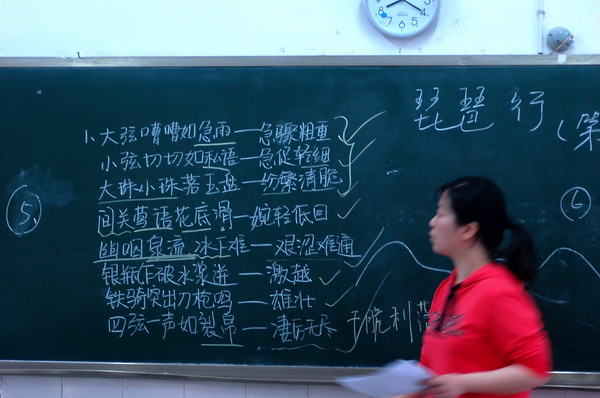 琵琶行
1、大弦嘈嘈如急雨—急骤粗重
小弦切切如私语—急促轻细
大珠小珠落玉盘—纷繁清脆
间关莺语花底滑—婉轻低回
幽咽泉流冰下难—艰涩难通
银瓶乍破水浆迸—激越
铁骑突出刀枪鸣—雄壮
四弦一声如裂帛—凄厉无尽
5
6